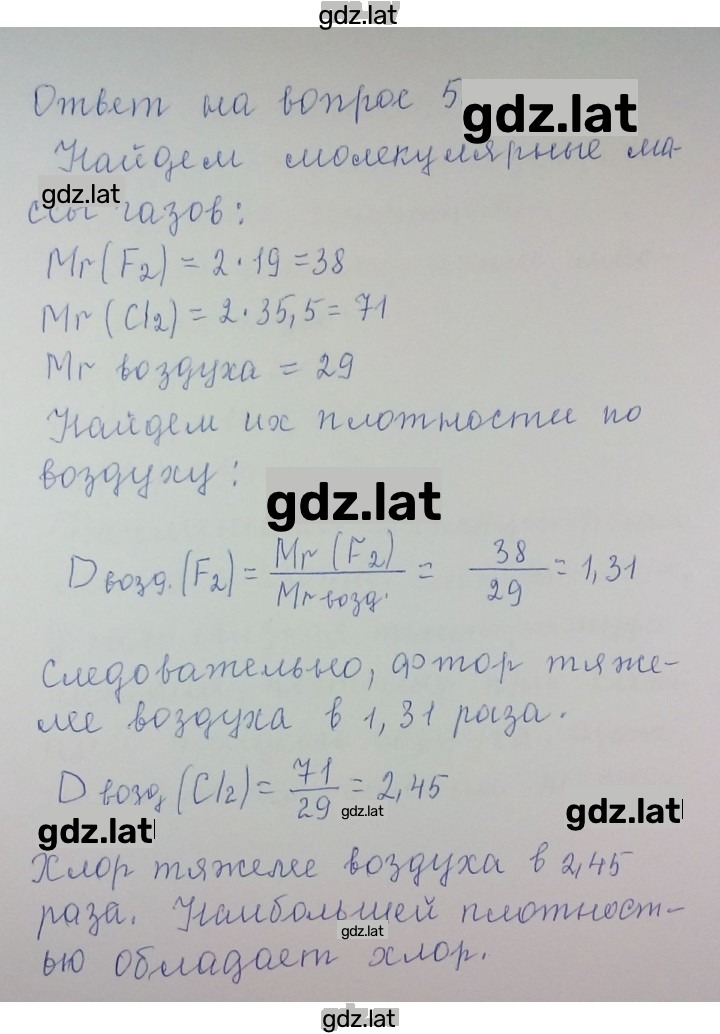 gdz.lat
Ответ на вопрос 5
gdz.lat
Найдем молекулярные ма-
gdz.lat
ссы газов:
Mr (F₂) = 2 · 19 = 38
Mr (Cl₂) = 2 · 35,5 = 71
Mr воздуха = 29
Найдем их плотности по
воздуху:
gdz.lat
D возд. (F₂) = Mr (F₂) / Mr возд. = 38 / 29 = 1,31
Следовательно, фтор тяже-
лее воздуха в 1,31 раза.
D возд (Cl₂) = 71 / 29 = 2,45
gdz.lat
gdz.lat
gdz.lat
Хлор тяжелее воздуха в 2,45
раза. Наибольшей плотност-
gdz.lat
ью обладает хлор.
gdz.lat